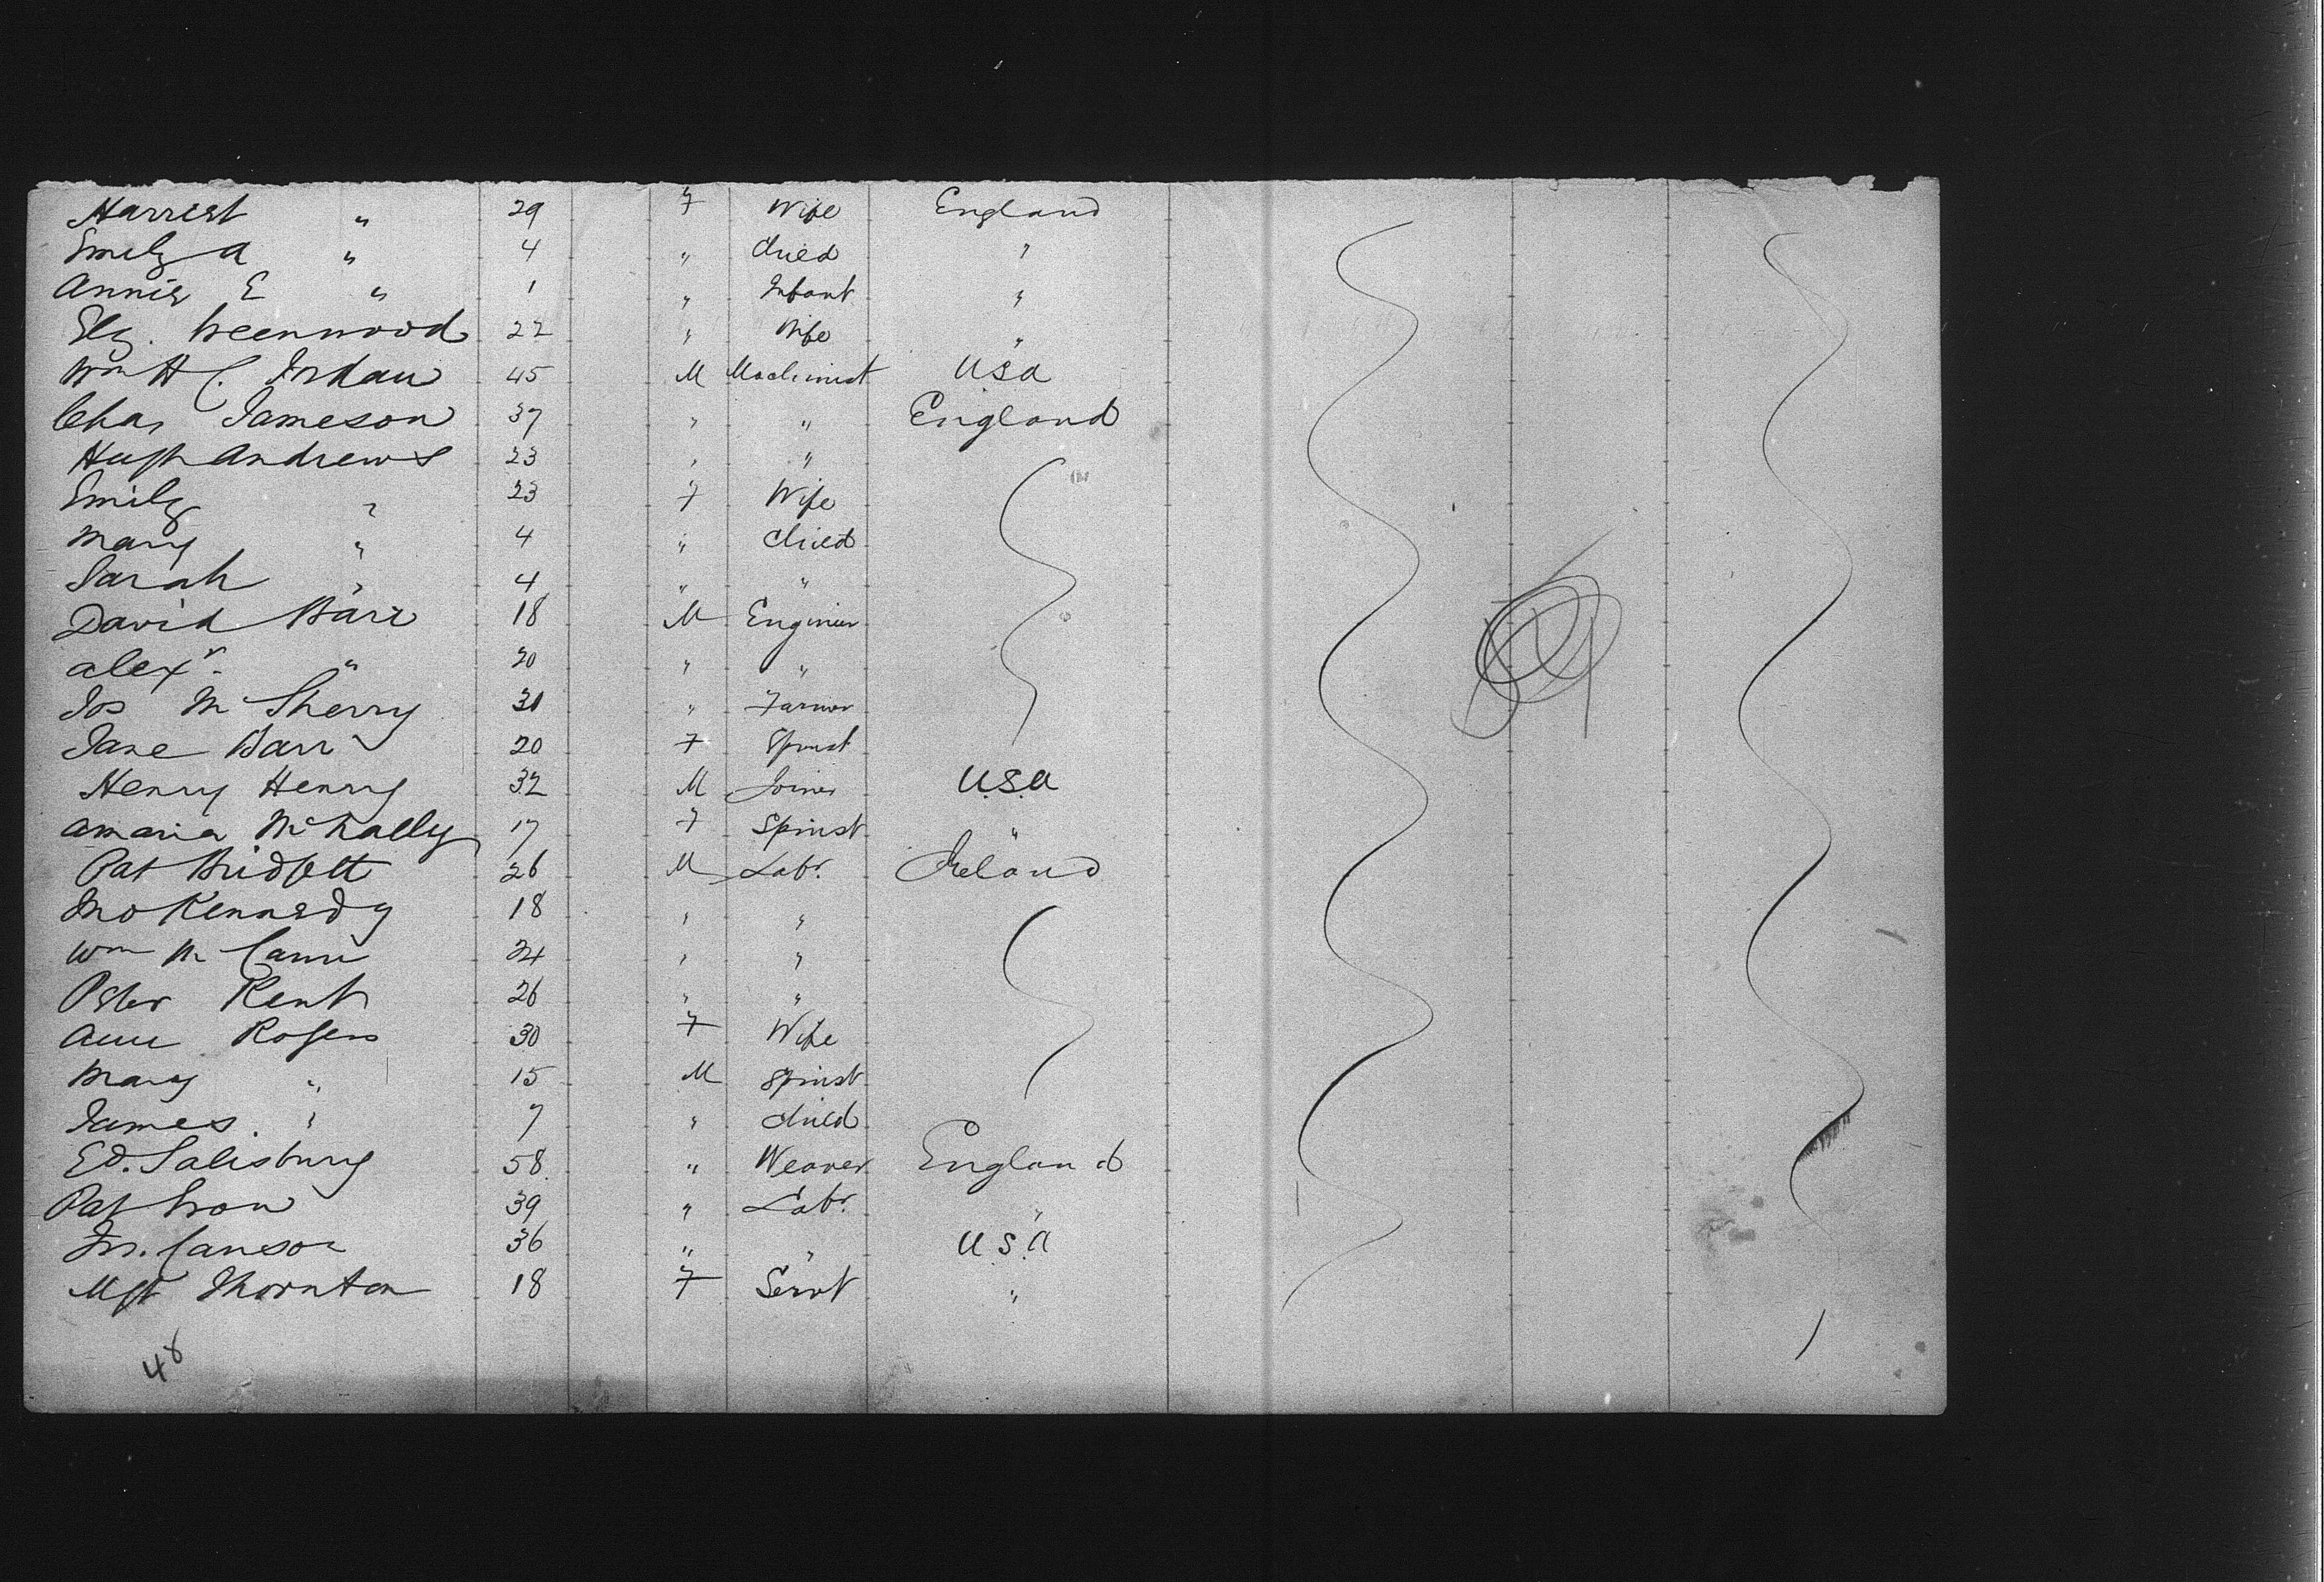 Harriet " 29 F Wife England
Emily A " 4 " Child "
Annie E " 1 " Infant "
Elz. Greenwood 22 " Wife "
Wm H C. Jordan 45 M Machinist USA
Chas Jameson 37 " " England
Hugh Andrews 23 " "
Emily " 23 F Wife
Mary " 4 " Child
Sarah " 4 " "
David Barr 18 M Engineer
Alexr. " 20 " "
Jos Mc Sherry 31 " Farmer
Jane Barr 20 F Spinst
Henry Henry 32 M Joiner U.S.A
McNally 17 F Spinst "
Pat 26 M Labr. Ireland
Jno Kennedy 18 " "
Wm Mc Cann 24 " "
Peter Kent 26 " "
Ann Rogers 30 F Wife
Mary " 15 M Spinst
James. " 7 " Child
Ed. Salisbury 58 " Weaver England
Pat 39 " Labr. "
36 " " U.S.A
Mgt Thornton 18 F Servt "
48